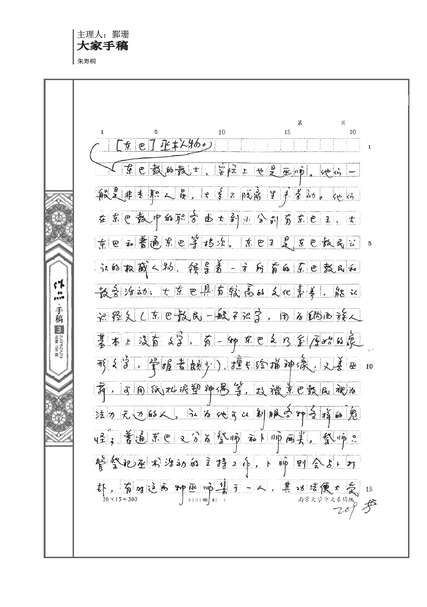 主理人：鄞珊
大家手稿
朱寿桐
第 页
1 5 10 15 20
[东巴]巫术人物。 1
东巴教的教士，实际上也是巫师。他们一
般是非专职人员，大多不脱离生产劳动。他们
在东巴教中的职务由大到小分别为东巴王、大
东巴和普通东巴等档次。东巴王是东巴教民公 5
认的权威人物，领导着一方所有的东巴教民和
教务活动；大东巴具有较高的文化素养，能认
记经文（东巴教民一般不识字，因为纳西族人
基本上没有文字，有一种东巴文乃半原始的象
形文字，掌握者颇少），擅长绘描神像，又善巫 10
舞，可用纸扎泥塑神偶等，故被东巴教民视为
法力无边的人，认为他可以制服各种各样的“鬼
怪”；普通东巴又分为祭师和卜师两类，祭师只
管祭祀巫术活动的主持工作，卜师则会占卜打
卦，有时这两种巫师集于一人，其功法便大受 15
20×15=300
南京大学中文系稿纸
作品
手稿
3